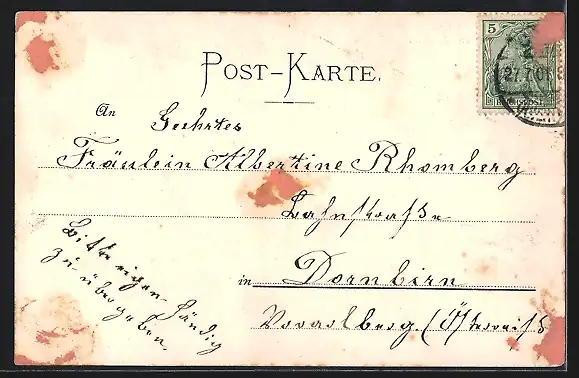 POST-KARTE.
5
REICHSPOST
27.7.01
An Geehrtes
Fräulein Albertine Rhomberg
Bahnstraße
in Dornbirn
Vorarlberg. (Österreich
Bitte eigen-händig
zu übergeben